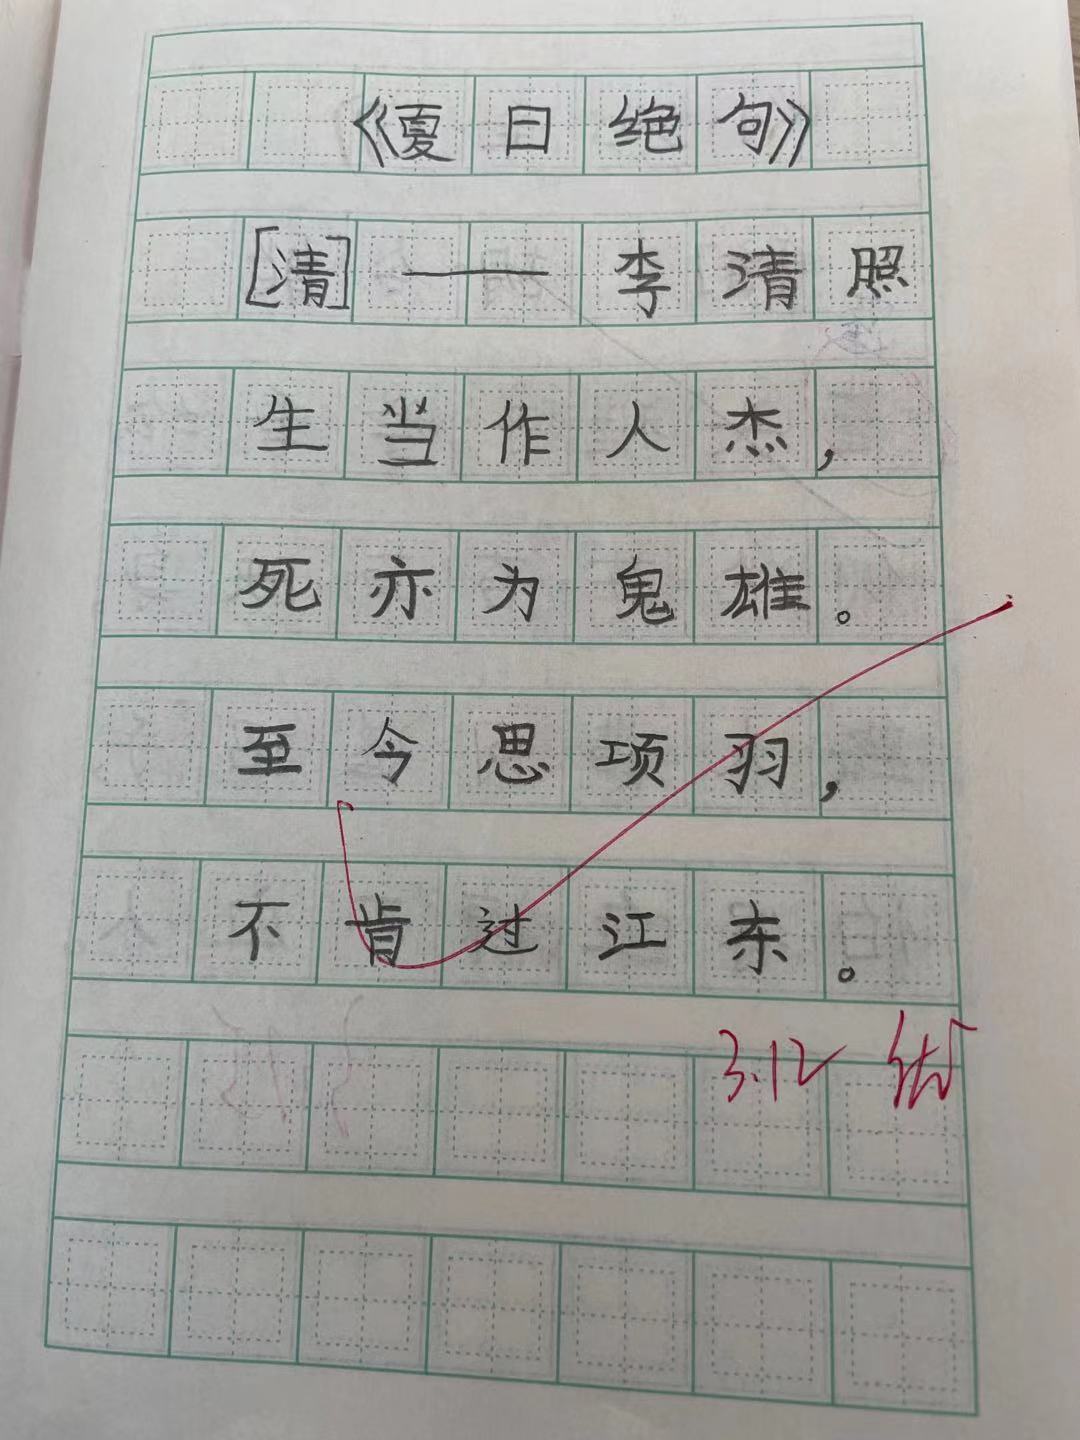 《夏日绝句》
[清]——李清照
生当作人杰，
死亦为鬼雄。
至今思项羽，
不肯过江东。
3.12 优